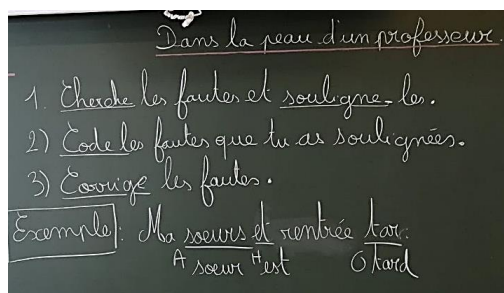 Dans la peau d'un professeur.
1. Cherche les fautes et souligne-les.
2) Code les fautes que tu as soulignées.
3) Corrige les fautes.
Exemple: Ma soeurs et rentrée tar.
A soeur H est O tard